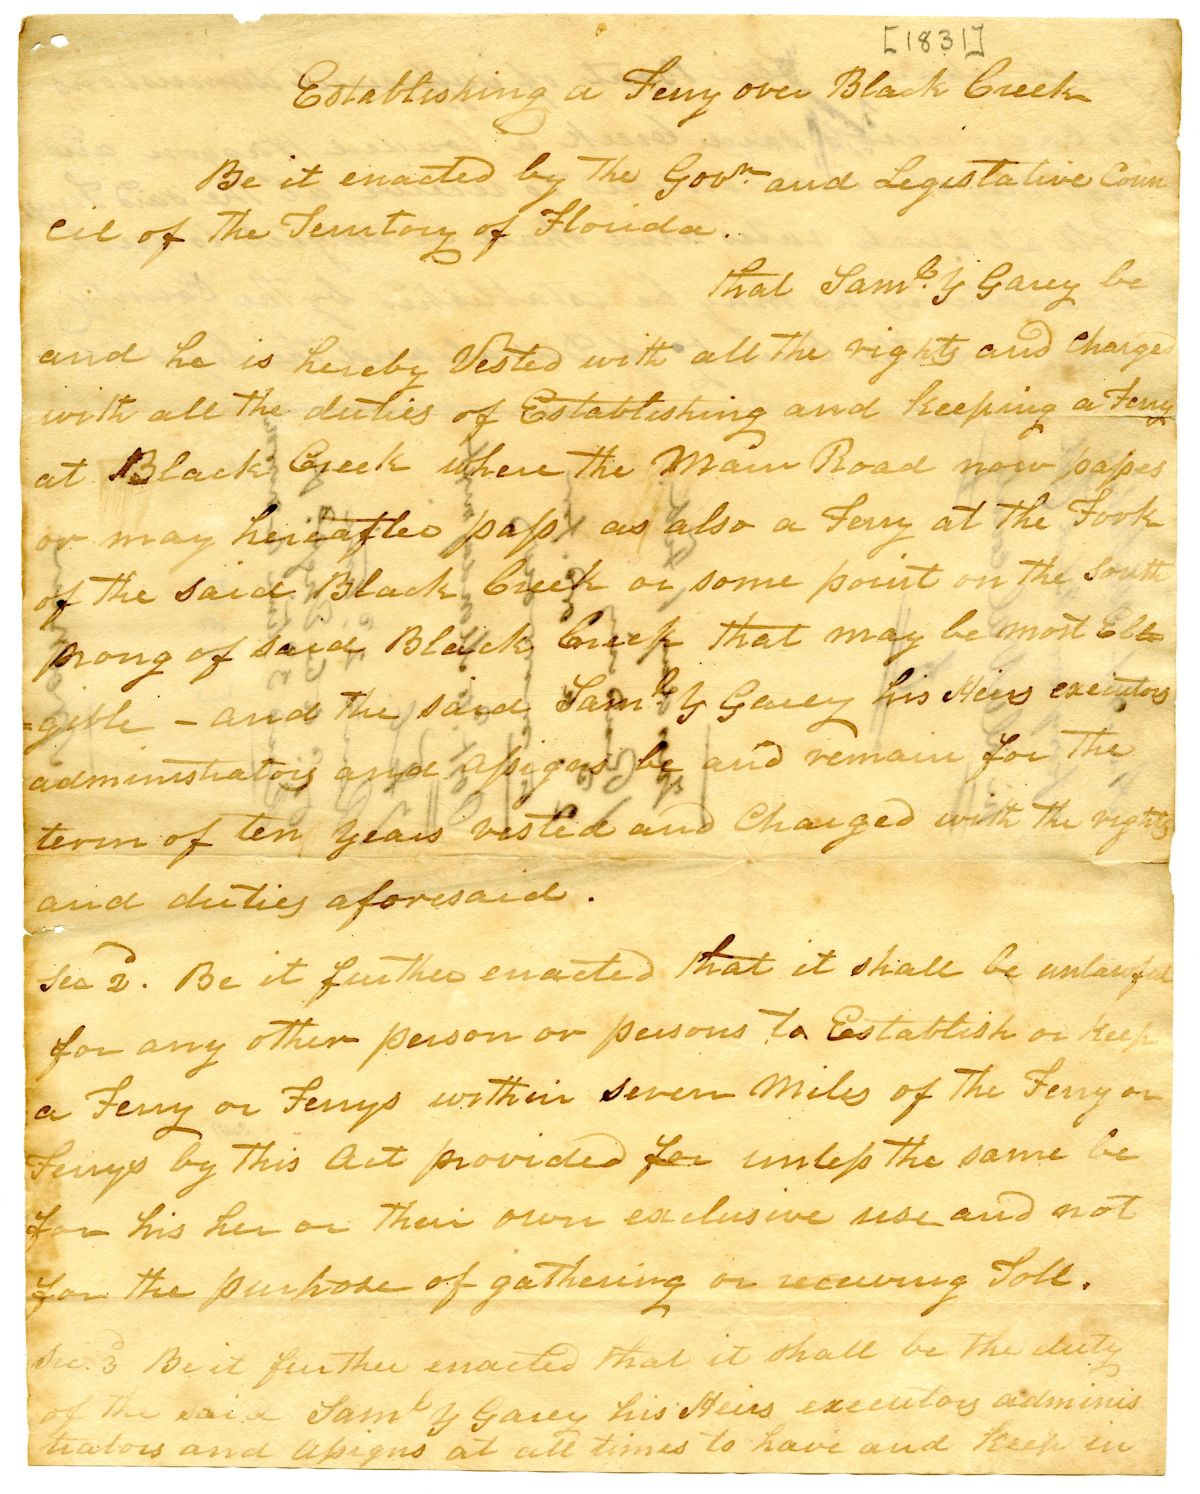 [1831]
Establishing a Ferry over Black Creek
Be it enacted by the Govr. and Legistative Coun
cil of the Territory of Florida.
that Saml. Y Garey be
and he is hereby Vested with all the rights and Charged
with all the duties of Establishing and keeping a Ferry
at Black Creek where the Main Road now passes
or may hereafter pass as also a Ferry at the Fork
of the said Black Creek or some point on the South
prong of said Black Creek that may be most Ele
=gible - and the said Saml. Y Garey his Heirs executors
administrators and assigns be and remain for the
term of ten Years vested and Charged with the rights
and duties aforesaid.
Sec 2d. Be it further enacted that it shall be unlawful
for any other person or persons to Establish or keep
a Ferry or Ferrys within seven Miles of the Ferry or
Ferrys by this Act provided for unless the same be
for his her or their own exclusive use and not
for the purpose of gathering or receiving Toll.
Sec. 3d Be it further enacted that it shall be the duty
of the said Saml Y Garey his Heirs executors adminis
trators and Assigns at all times to have and keep in